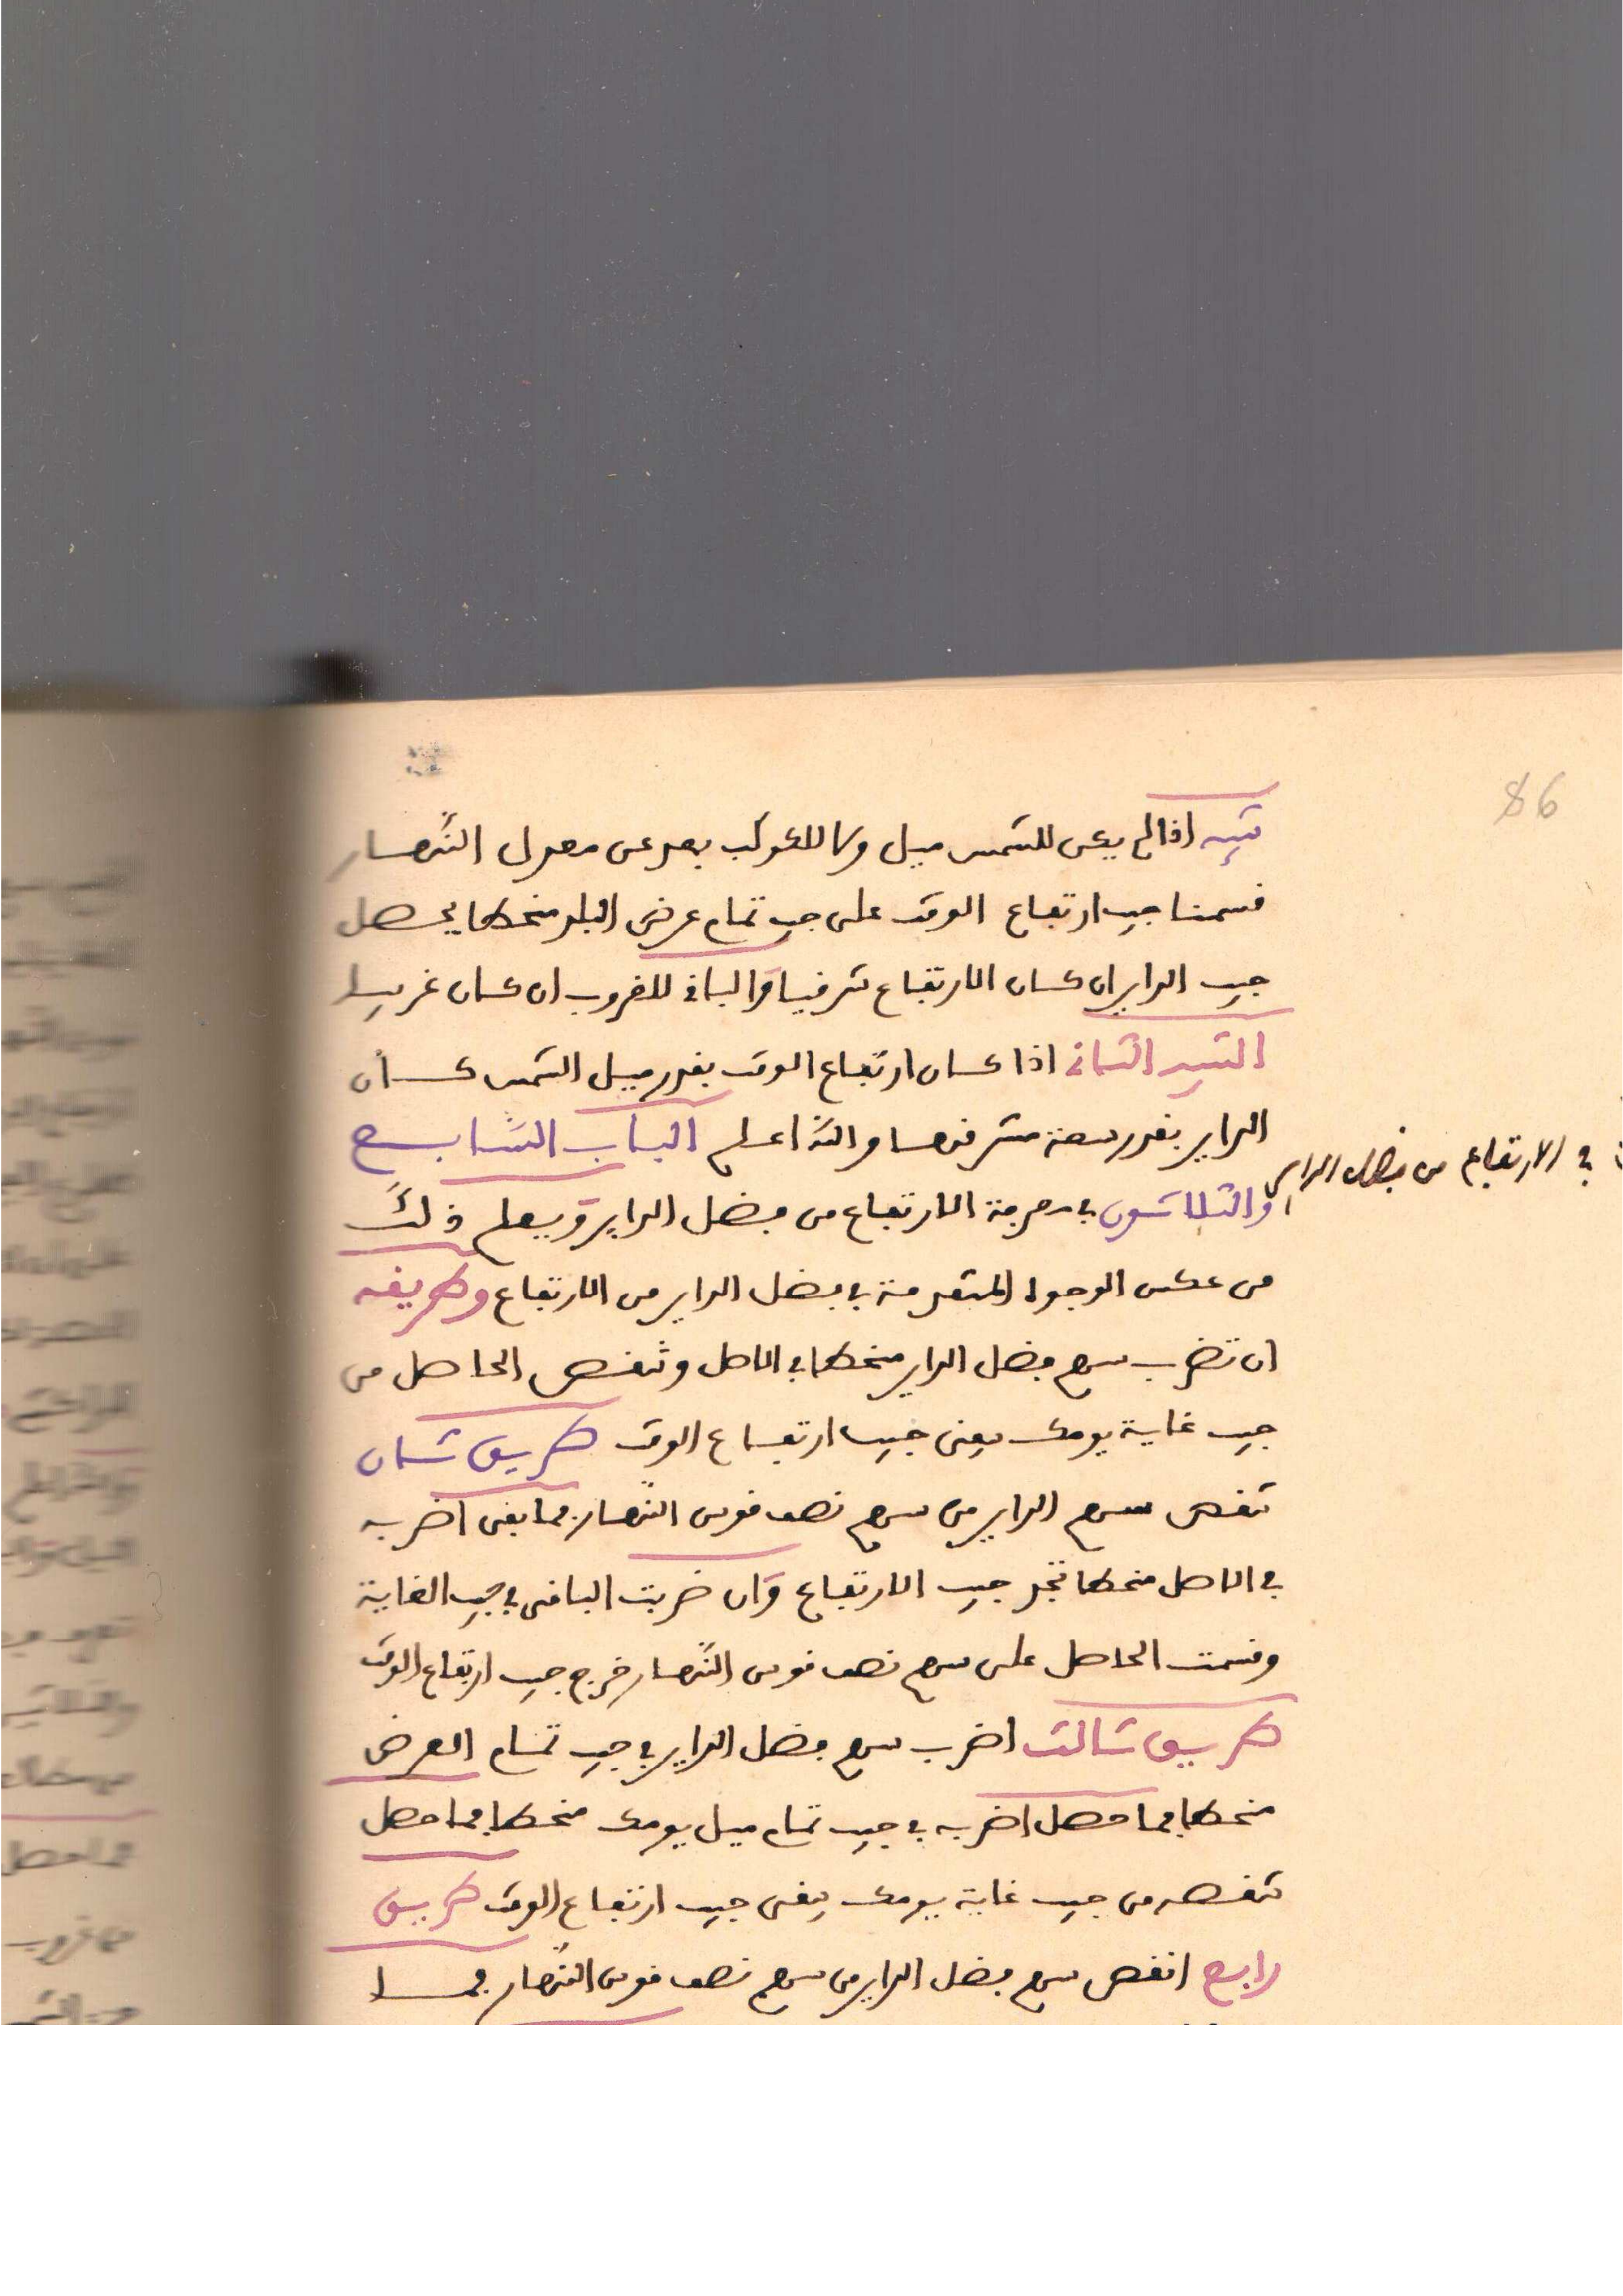 86
تنبيه اذا لم يكن للشمس ميل ولا للكوكب بعد عن معدل النهار
قسمنا جيب ارتفاع الوقت على جيب تمام عرض البلد منحطا يحصل
جيب الداير ان كان الارتفاع شرقيا والباقي للغروب ان كان غربيا
التنبيه الثاني اذا كان ارتفاع الوقت بقدر ميل الشمس كان
الداير بقدر سعة مشرقها والله اعلم الباب السابع
والثلاثون في معرفة الارتفاع من فضل الداير ويعلم ذلك
في الارتفاع من فضل الداير
من عكس الوجوه المتقدمة في فضل الداير من الارتفاع وطريقه
ان تضرب سهم فضل الداير منحطا في الاصل وتنقص الحاصل من
جيب غاية يومك يبقى جيب ارتفاع الوقت طريق ثان
تنقص سهم الداير من سهم نصف قوس النهار فما بقى اضربه
في الاصل منحطا تجد جيب الارتفاع وان ضربت الباقى في جيب الغاية
وقسمت الحاصل على سهم نصف قوس النهار خرج جيب ارتفاع الوقت
طريق ثالث اضرب سهم فضل الداير في جيب تمام العرض
منحطا فما حصل اضربه في جيب تمام ميل يومك منحطا فما حصل
تنقصه من جيب غاية يومك يبقى جيب ارتفاع الوقت طريق
رابع انقص سهم فضل الداير من سهم نصف قوس النهار فما